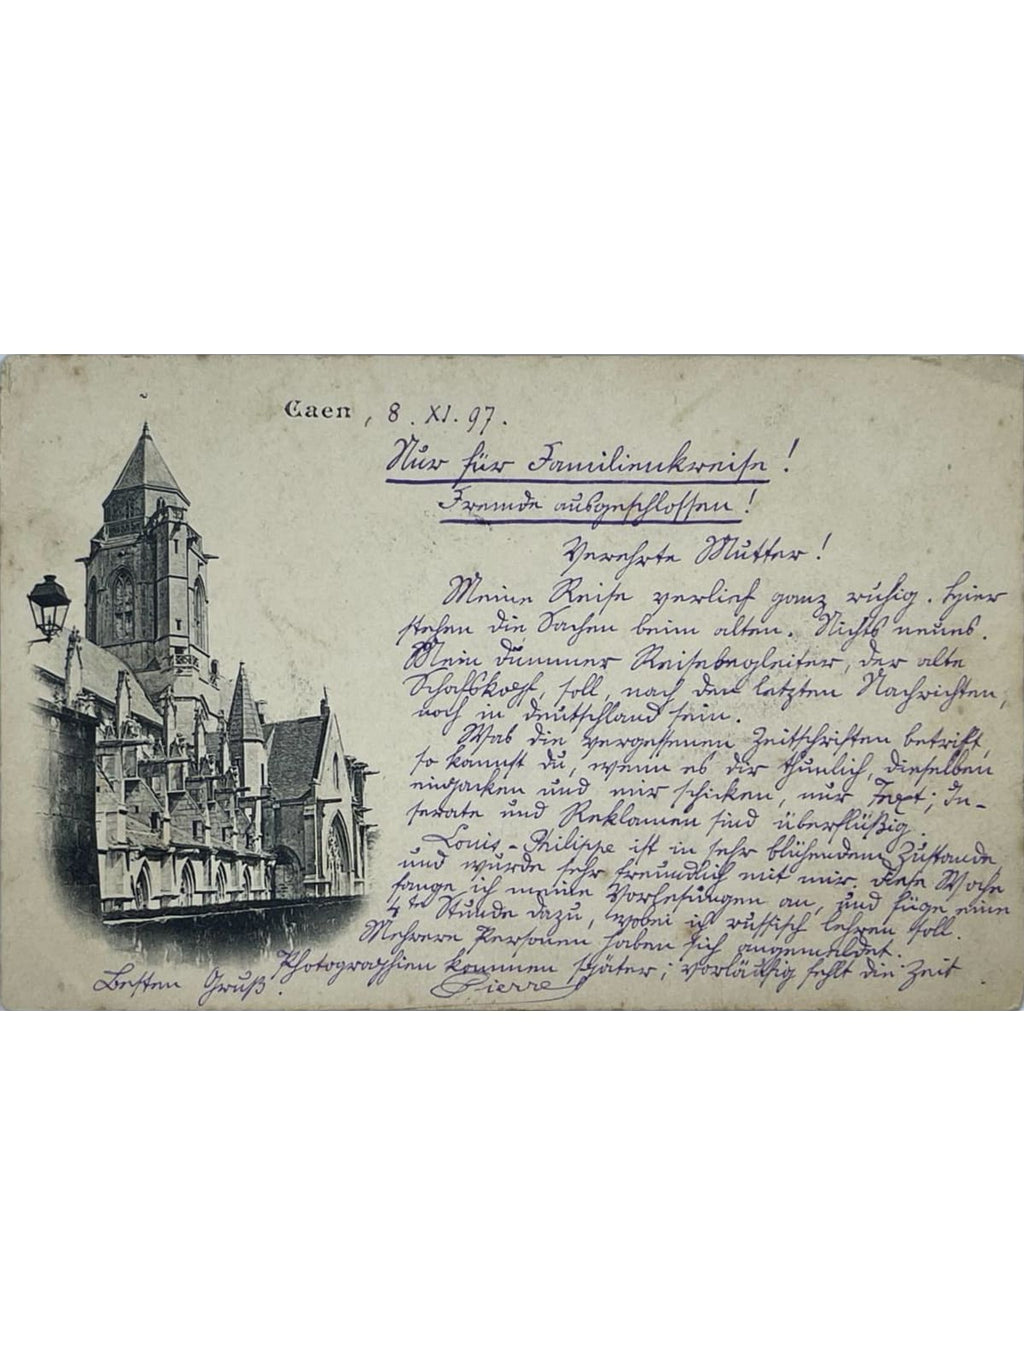 Caen, 8. XI. 97.
Nur für Familienkreise!
Fremde ausgeschlossen!
Verehrte Mutter!
Meine Reise verlief ganz ruhig. Hier
stehen die Sachen beim alten. Nichts neues.
Mein dummer Reisebegleiter, der alte
Schafskopf, soll, nach den letzten Nachrichten,
noch in Deutschland sein.
Was die vergessenen Zeitschriften betrift,
so kannst du, wenn es dir thunlich, dieselben
einpacken und mir schicken, nur Text; In-
serate und Reklamen sind überflüßig.
Louis-Philippe ist in sehr blühendem Zustande,
und wurde sehr freundlich mit mir. Diese Woche
fange ich meine Vorlesungen an, und füge eine
4te Stunde dazu, wobei ich russisch lehren soll.
Mehrere Personen haben sich angemeldet.
Photographien kommen später; vorläufig fehlt die Zeit
Besten Gruß. Pierre